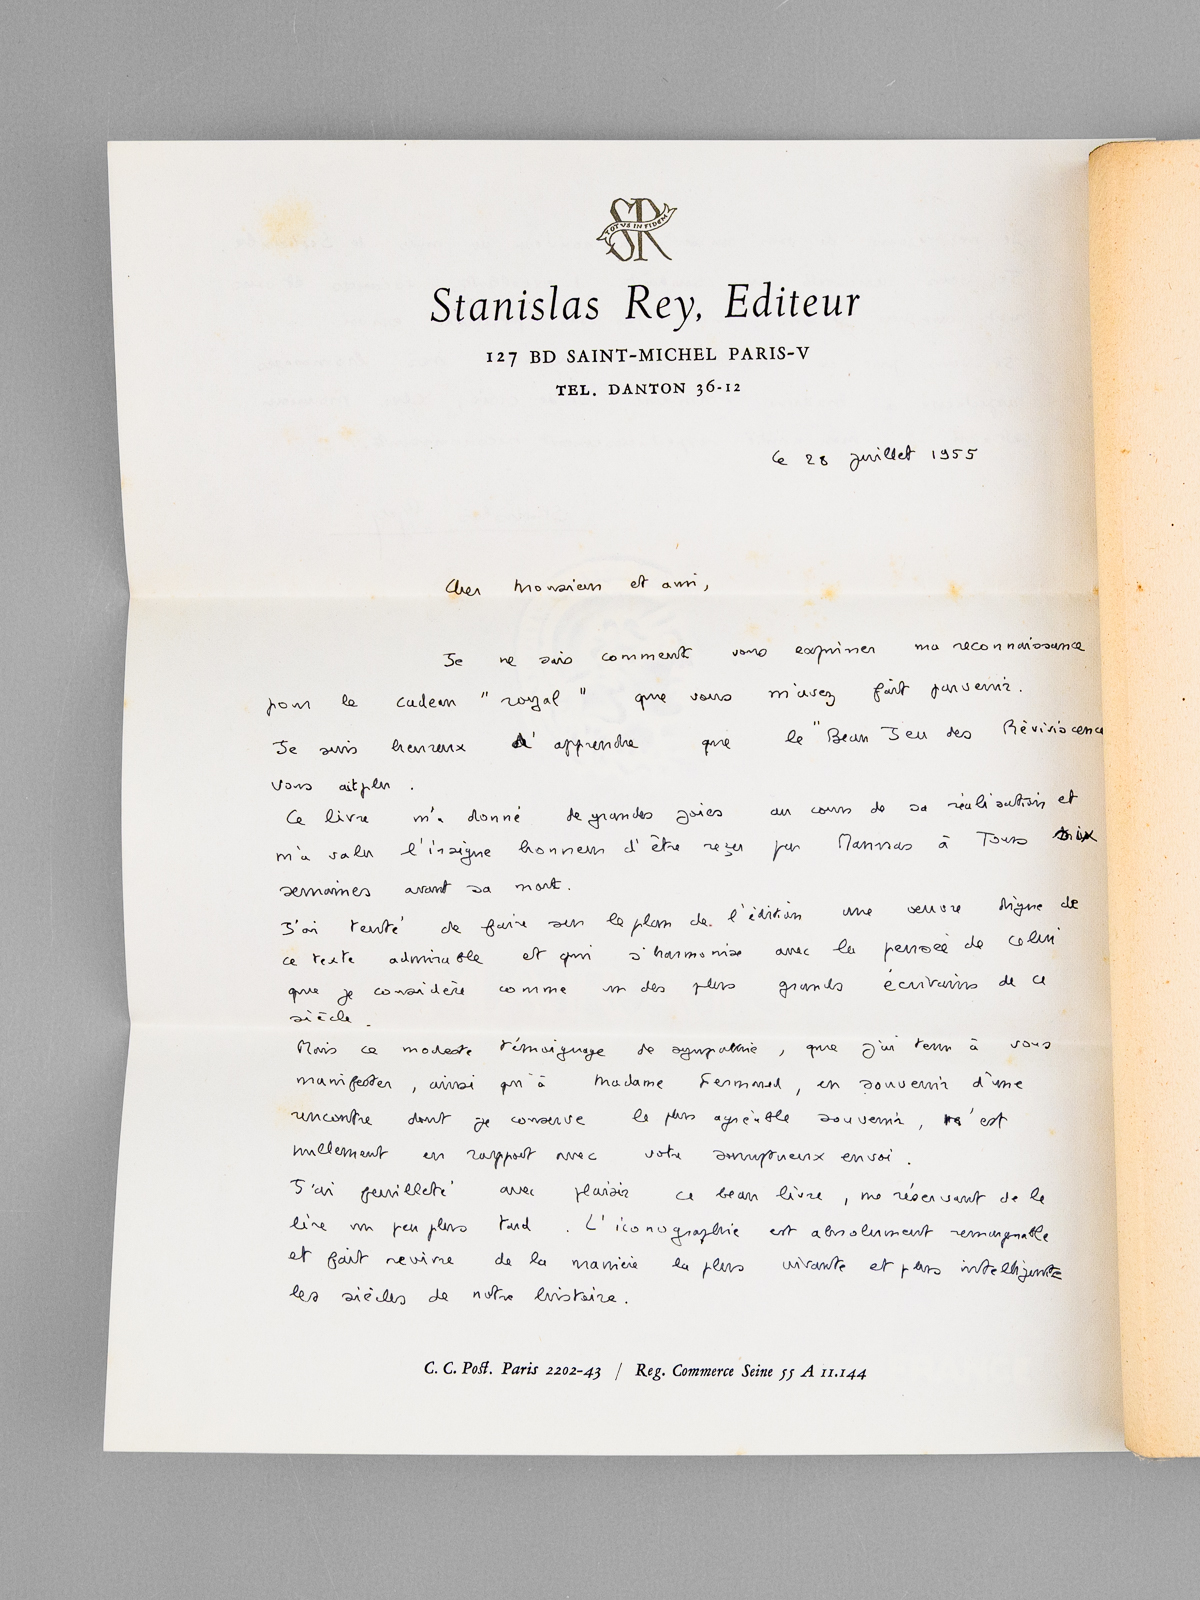 SR
TOTUS IN FIDEM
Stanislas Rey, Editeur
127 BD SAINT-MICHEL PARIS-V
TEL. DANTON 36-12
le 28 juillet 1955
Cher Monsieur et ami,
Je ne sais comment vous exprimer ma reconnaissance
pour le cadeau "royal" que vous m'avez fait parvenir.
Je suis heureux d'apprendre que le "Beau Jeu des Réviviscence
vous ait plu.
Ce livre m'a donné de grandes joies au cours de sa réalisation et
m'a valu l'insigne honneur d'être reçu par Maurras à Tours six
semaines avant sa mort.
J'ai tenté de faire sur le plan de l'édition une œuvre digne de
ce texte admirable et qui s'harmonise avec la pensée de celui
que je considère comme un des plus grands écrivains de ce
siècle.
Mais ce modeste témoignage de sympathie, que j'ai tenu à vous
manifester, ainsi qu'à Madame en souvenir d'une
rencontre dont je conserve le plus agréable souvenir, n'est
nullement en rapport avec votre somptueux envoi.
J'ai feuilleté avec plaisir ce beau livre, me réservant de le
lire un peu plus tard. L'iconographie est absolument remarquable
et fait revivre de la manière la plus vivante et plus intelligente
les siècles de notre histoire.
C. C. Post. Paris 2202-43 / Reg. Commerce Seine 55 A 11.144